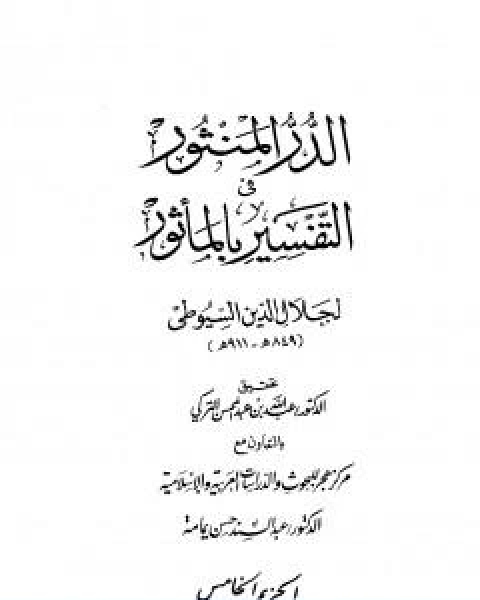 الدُّرُّ المَنْثُورْ
في
التَّفْسِيرِ بِالمَأْثُورْ
لجلال الدين السيوطي
(٨٤٩هـ - ٩١١هـ)
تحقيق
الدكتور/عبدالله بن عبدالمحسن التركي
بالتعاون مع
مركز هجر للبحوث والدراسات العربية والإسلامية
الدكتور/عبدالسند حسن يمامة
الجزء الخامس